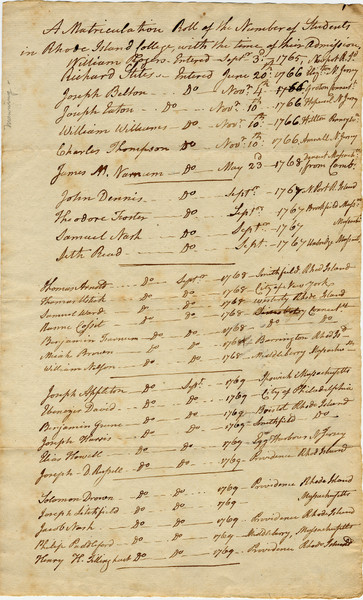 A Matriculation Roll of the Number of Students
in Rhode Island College, with the time of their Admission,
William Rogers. Entered Sept. 3d. 1765, Newport R. I.
Richard Stites Entered June 20th 1766 N. Jersey
Joseph Belton Do Nov. 4th 1766 Groton Connect.
Joseph Eaton Do Nov. 10th 1766 N. Jer
William Williams Do Nov. 10th 1766 Hilton
Charles Thompson Do Nov. 10th 1766 Amwell N. Jer
James M. Varnum Do May 23d 1768 from Camb.
John Dennis Do Sept. 1767 N. Port R. Island
Theodore Foster Do Sept. 1767 Brookfield
Samuel Nash Do Sept. 1767
Seth Read Do Sept. 1767 Uxbridge
Thomas Arnold Do Sept. 1768 Smithfield Rhod Island
Thomas Do Do 1768 City of New York
Samuel Ward Do Do 1768 Westerly Rhode Island
Do Do 1768
Benjamin Do Do 1768 Do Do
Micah Brown Do Do 1768 Barrington
William Nelson Do Do 1768 Middleberry
Joseph Appleton Do Sept. 1769 Ipswich Massachusetts
Ebenezer David Do Do 1769 City of Philadelphia
Benjamin Greene Do Do 1769 Bristol Rhode Island
Joseph Harris Do Do 1769 Smithfield Do
Elias Howell Do Do 1769 Egg Harbour N. Jersey
Joseph D. Russell Do Do 1769 Providence Rhod Island
Solomon Drown Do Do 1769 Providence Rhode Island
Joseph Litchfield Do Do 1769 Massachusetts
Jacob Nash Do Do 1769
Philip Padleford Do Do 1769 Middlebery, Massachusetts
Henry H. Tillinghast Do Do 1769 Providence Rhode Island